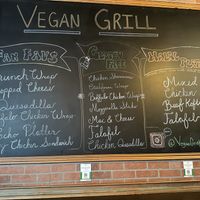 VEGAN GRILL
FAN FAVS
Crunch Wrap
Chopped Cheese
Quesadilla
Buffalo Chicken Wrap
Nacho Platter
Chicken Sandwich
GLUTEN FREE
Chicken Shawarma
Buffalo Chicken Wrap
Mozzarella Sticks
Mac & Cheese
Falafel
Chicken Quesadilla
HALAL
Mixed
Chicken
Beef Kofta
Falafel